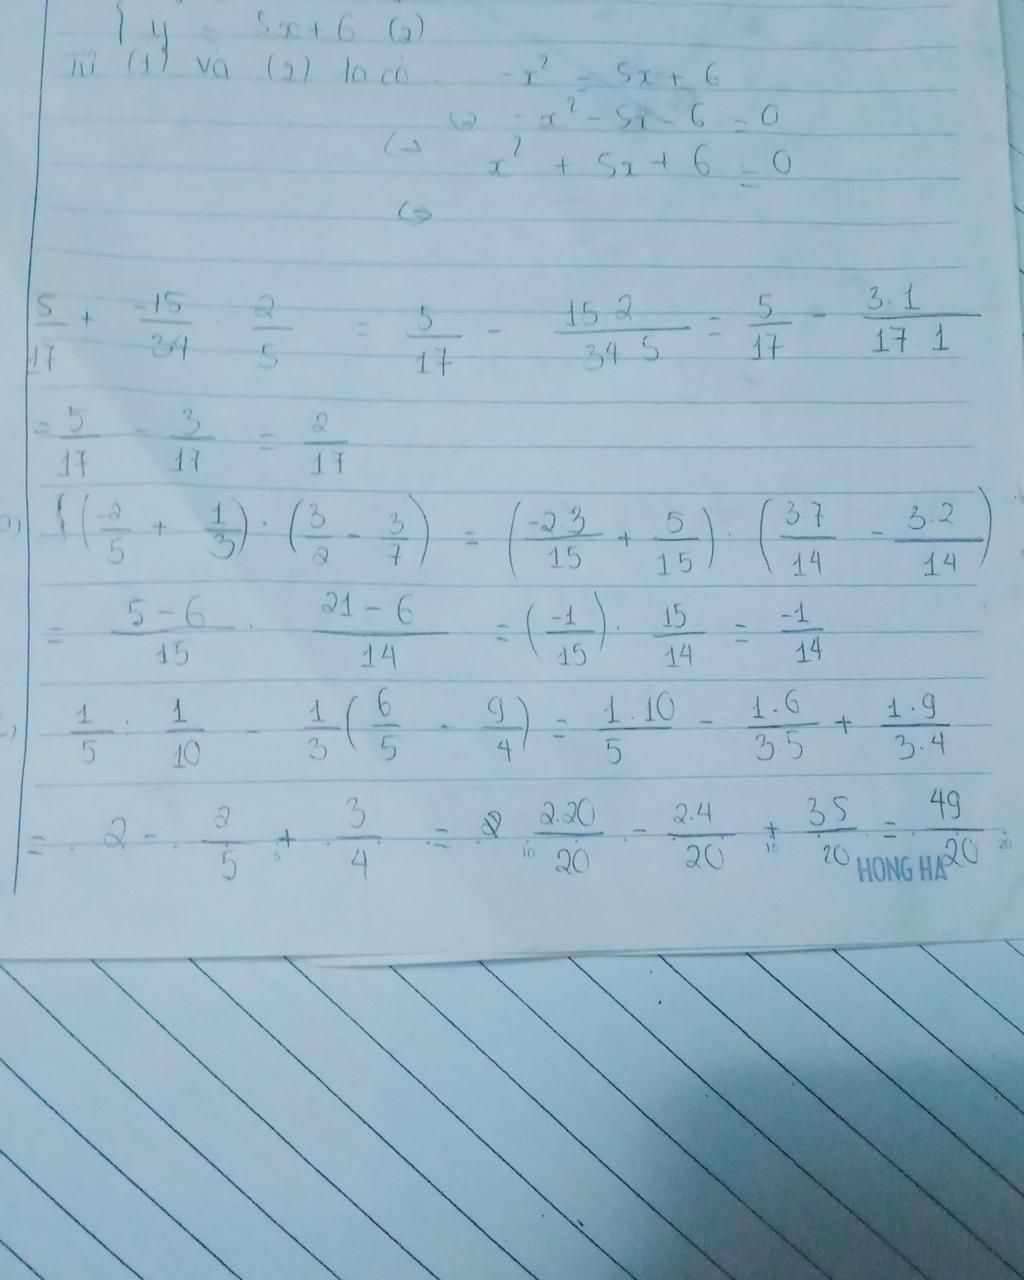 { y = 5x + 6 (2)
Từ (1) và (2) ta có -x² = 5x + 6
<=> -x² - 5x - 6 = 0
<=> x² + 5x + 6 = 0
<=>
5/17 + -15/34 . 2/5 = 5/17 - 15 2/34 5 = 5/17 - 3.1/17 1
= 5/17 - 3/17 = 2/17
b) (-2/5 + 1/3) . (3/2 - 3/7) = (-2.3/15 + 5/15) . (3.7/14 - 3.2/14)
= 5-6/15 . 21-6/14 = (-1/15) . 15/14 = -1/14
1/5 : 1/10 - 1/3 (6/5 - 9/4) = 1.10/5 - 1.6/3.5 + 1.9/3.4
= 2 - 2/5 + 3/4 = 2.20/20 - 2.4/20 + 3.5/20 = 49/20
5 10 15 20
HONG HA